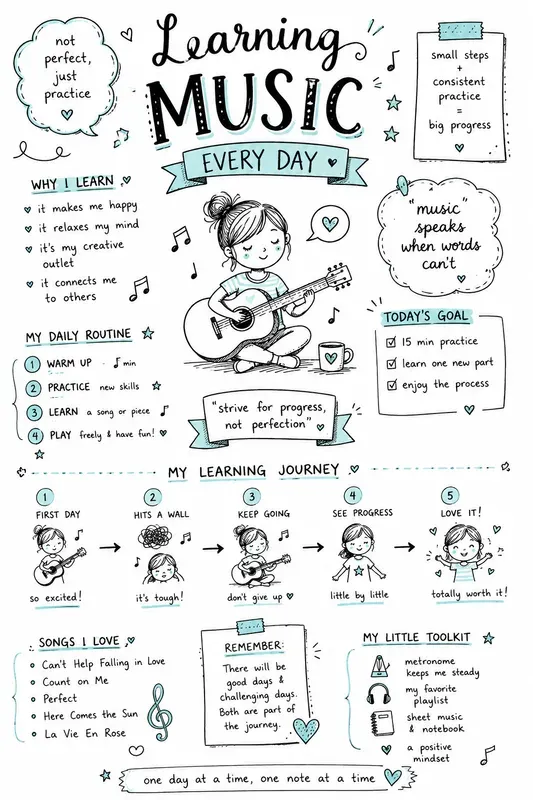 not
perfect,
just
practice
Learning
MUSIC
EVERY DAY
small steps
+
consistent
practice
=
big progress
WHY I LEARN
it makes me happy
it relaxes my mind
it's my creative
outlet
it connects me
to others
"music"
speaks
when words
can't
MY DAILY ROUTINE
1 WARM UP · ♩ min
2 PRACTICE new skills
3 LEARN a song or piece
4 PLAY freely & have fun!
TODAY'S GOAL
15 min practice
learn one new part
enjoy the process
"strive for progress,
not perfection"
MY LEARNING JOURNEY
1
FIRST DAY
so excited!
2
HITS A WALL
it's tough!
3
KEEP GOING
don't give up
4
SEE PROGRESS
little by little
5
LOVE IT!
totally worth it!
SONGS I LOVE
Can't Help Falling in Love
Count on Me
Perfect
Here Comes the Sun
La Vie En Rose
REMEMBER:
There will be
good days &
challenging days.
Both are part of
the journey.
MY LITTLE TOOLKIT
metronome
keeps me steady
my favorite
playlist
sheet music
& notebook
a positive
mindset
one day at a time, one note at a time